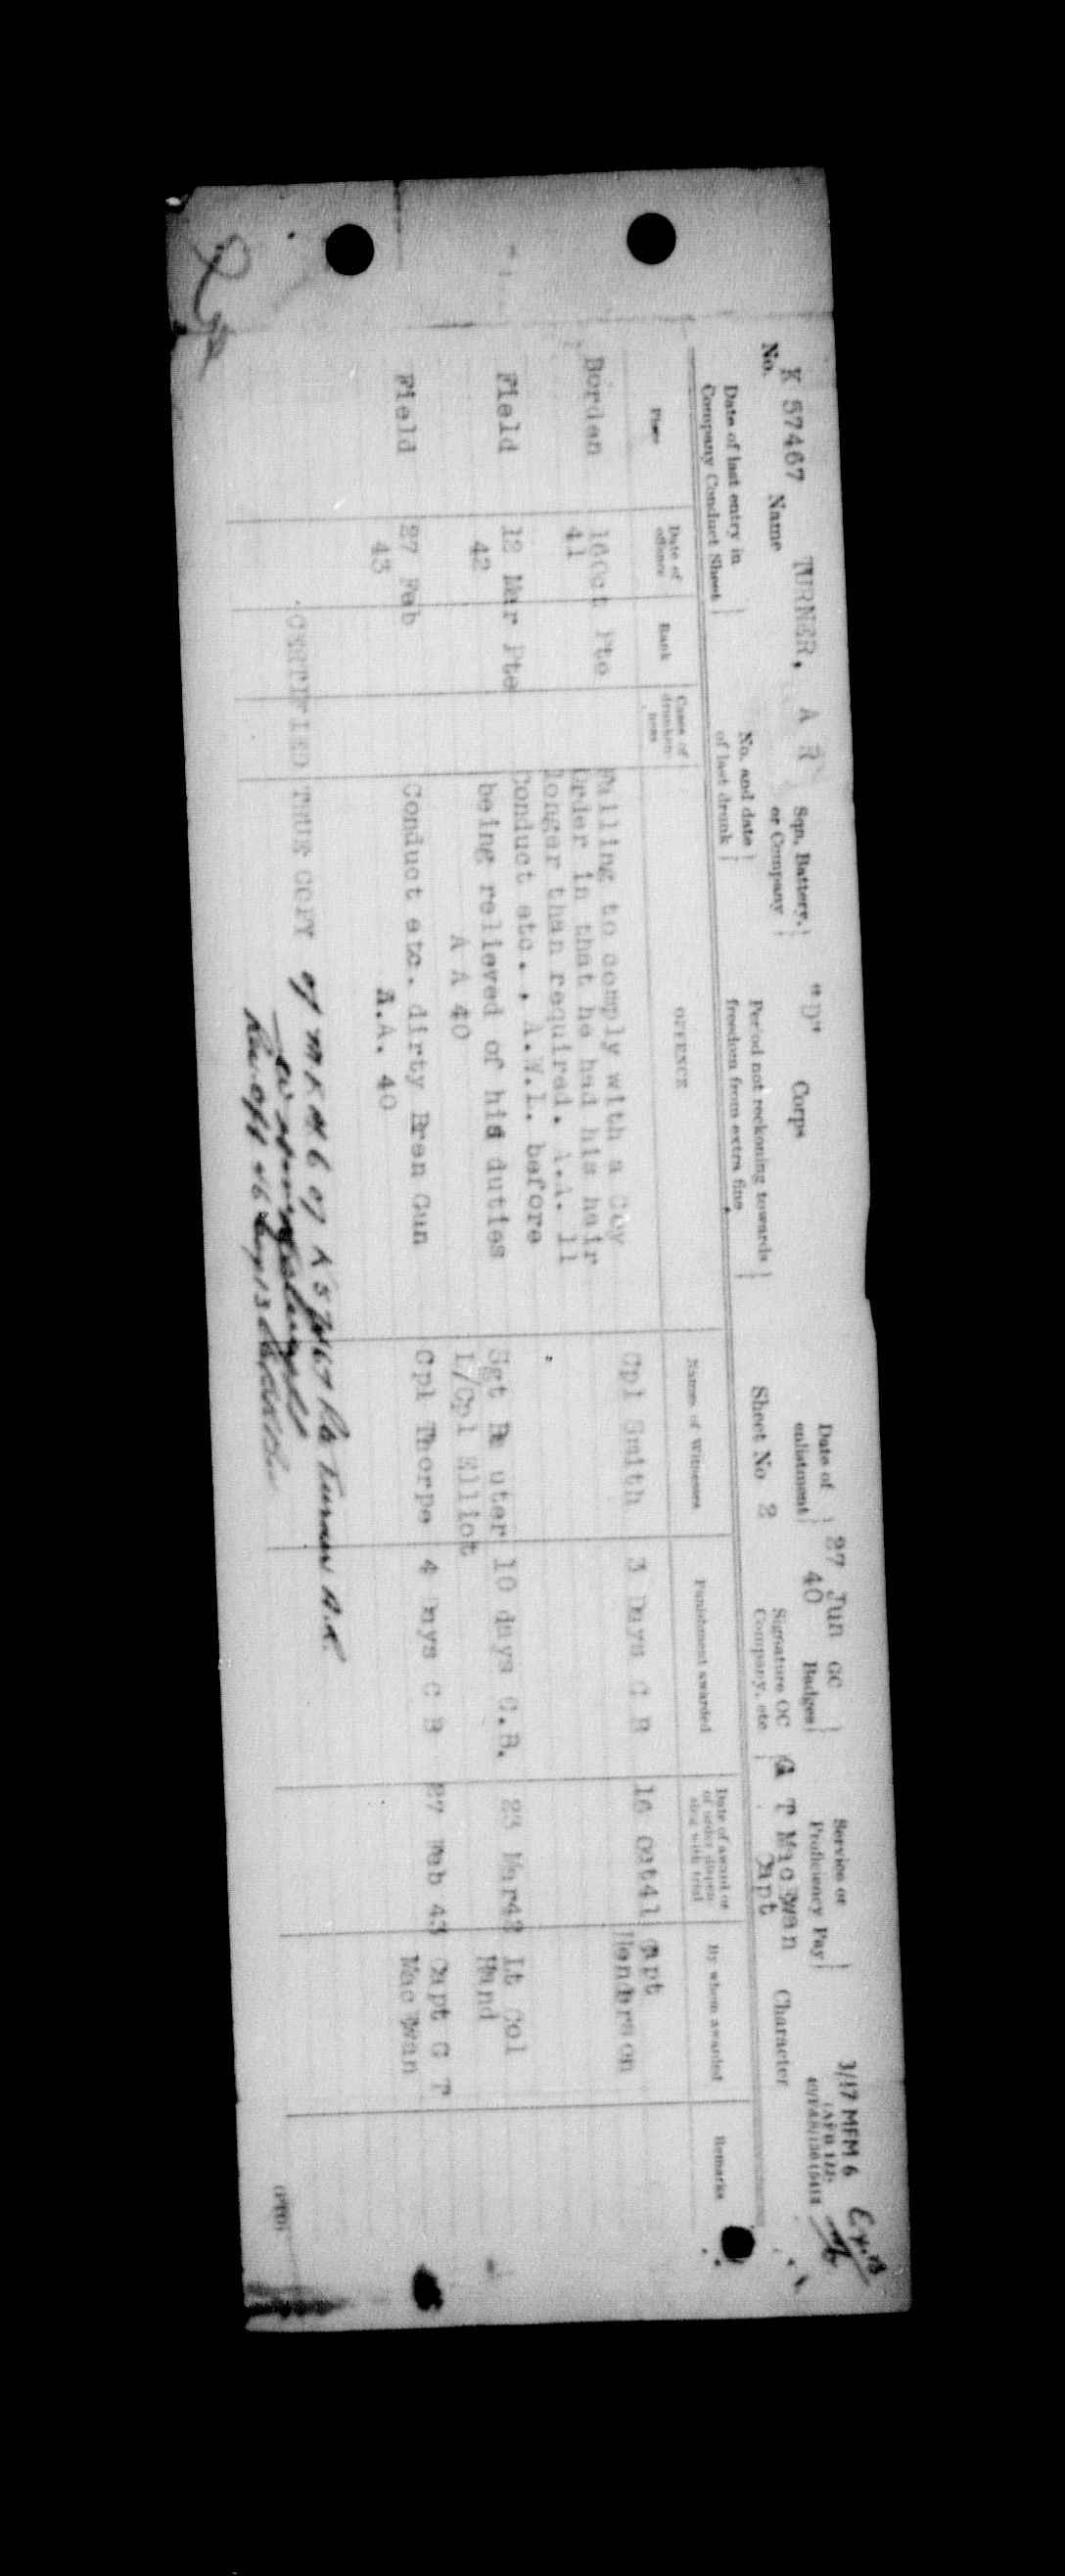 3/17 MFM 6
Ex. B
No. K 57467 Name TURNER, A R Sqn. Battery, or Company "D" Corps Date of enlistment 27 Jun 40 GC Badges Service or Proficiency Pay Character
Date of last entry in Company Conduct Sheet No. and date of last drunk Period not reckoning towards freedom from extra fine Sheet No 2 Signature OC Company, etc G T MacEwan Capt
Place Date of offence Rank Cases of drunkenness OFFENCE Names of Witnesses Punishment awarded Date of award or of order dispensing with trial By whom awarded Remarks
Borden 16Oct Pte Failing to comply with a Coy Cpl Smith 3 Days C B 16 Oct41 Capt
41 Order in that he had his hair Henderson
longer than required. A.A. 11
Field 12 Mar Pte Conduct etc., A.W.L. before Sgt Pe uter 10 days C.B. 23 Mar42 Lt Col
42 being relieved of his duties L/Cpl Elliot Hand
A A 40
Field 27 Feb Conduct etc. dirty Bren Gun Cpl Thorpe 4 Days C B 27 Feb 43 Capt G T
43 A.A. 40 MacEwan
CERTIFIED TRUE COPY of M F M 6 of K 57467 Pte Turner A.R.
(PTO)